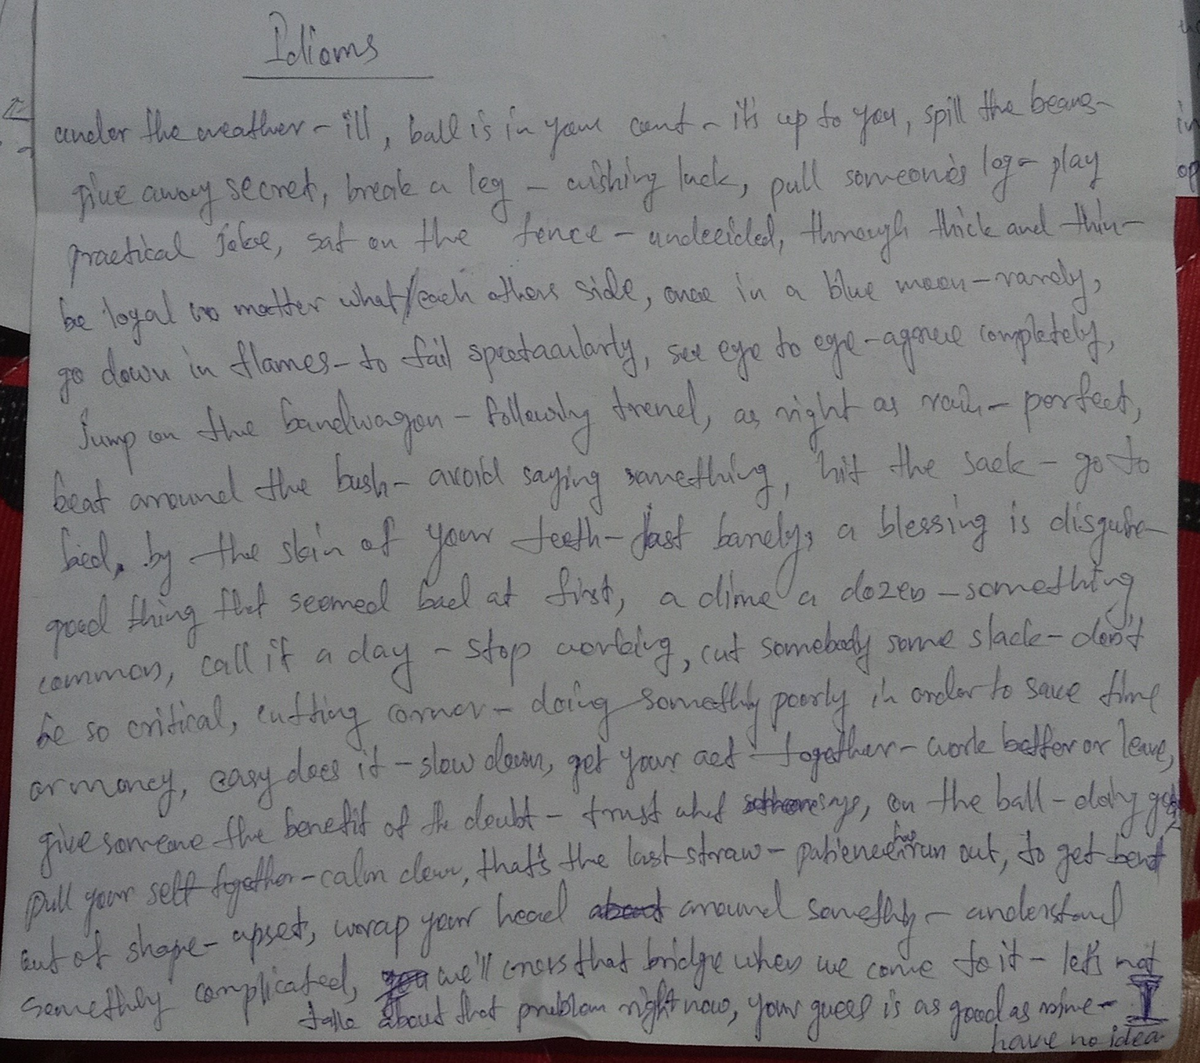 Idioms
under the weather - ill, ball is in your court - it's up to you, spill the beans -
give away secret, break a leg - wishing luck, pull someone's leg - play
practical joke, sat on the fence - undecided, through thick and thin -
be loyal no matter what/each others side, once in a blue moon - rarely,
go down in flames - to fail spectacularly, see eye to eye - agree completely,
Jump on the bandwagon - following trend, as right as rain - perfect,
beat around the bush - avoid saying something, hit the sack - go to
bed, by the skin of your teeth - just barely, a blessing is disguise
good thing that seemed bad at first, a dime a dozen - something
common, call it a day - stop working, cut somebody some slack - don't
be so critical, cutting corner - doing something poorly in order to save time
or money, easy does it - slow down, get your act together - work better or leave,
give someone the benefit of the doubt - trust what says, on the ball - doing good
pull your self together - calm down, that's the last straw - patience has run out, to get bent
out of shape - upset, wrap your head around something - understand
something complicated, we'll cross that bridge when we come to it - let's not
talk about that problem right now, your guess is as good as mine - I
have no idea